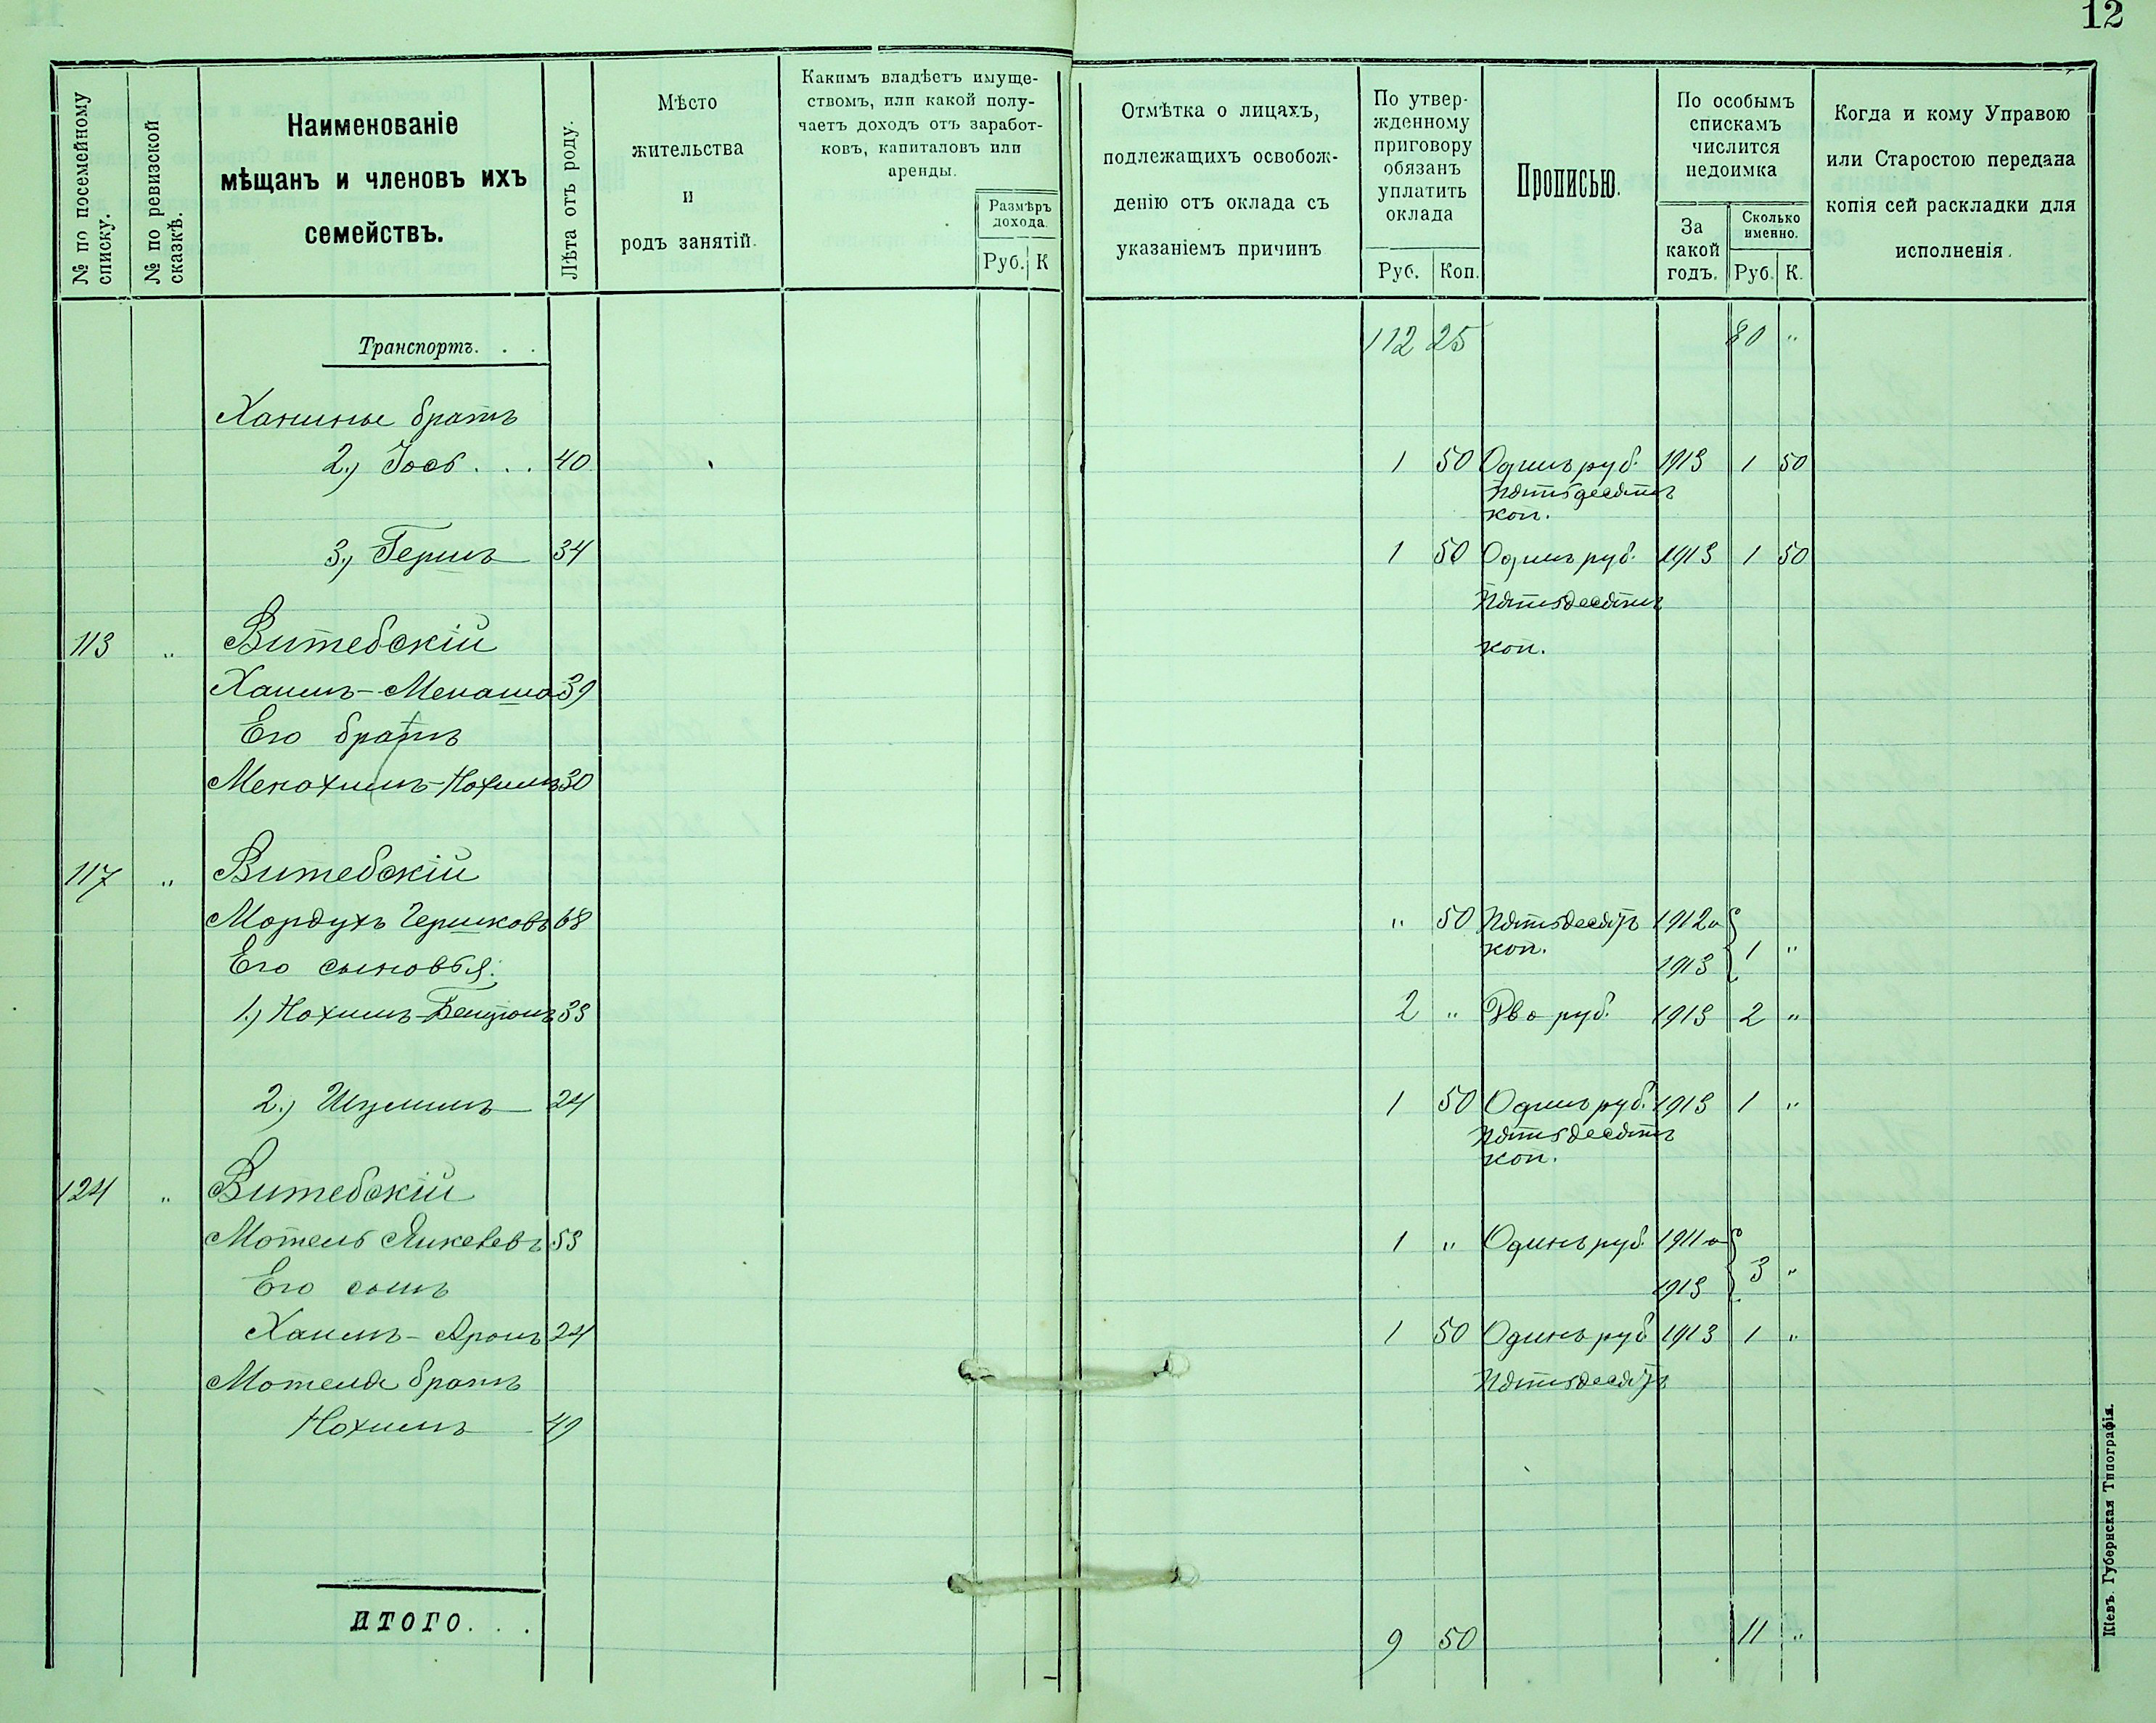 12
№ по посемейному списку.
№ по ревизской сказкѣ.
Наименованіе
мѣщанъ и членовъ ихъ
семействъ.
Лѣта отъ роду.
Мѣсто
жительства
и
родъ занятій.
Какимъ владѣетъ имуще-
ствомъ, или какой полу-
чаетъ доходъ отъ заработ-
ковъ, капиталовъ или
аренды.
Размѣръ
дохода.
Руб. К
Отмѣтка о лицахъ,
подлежащихъ освобож-
денію отъ оклада съ
указаніемъ причинъ
По утвер-
жденному
приговору
обязанъ
уплатить
оклада
Руб. Коп.
Прописью.
По особымъ
спискамъ
числится
недоимка
За
какой
годъ.
Сколько
именно.
Руб. К.
Когда и кому Управою
или Старостою передана
копія сей раскладки для
исполненія.
Транспортъ. . . 112 25 80 "
Ханинье братъ
2.) Іось . . . 40 1 50 Одинъ руб. 1913 1 50
пятьдесятъ
коп.
3.) Гершъ 34 1 50 Одинъ руб. 1913 1 50
пятьдесятъ
113 " Витебскій коп.
Хаимъ-Менаша 39
Его братъ
Менахимъ-Нохимъ 30
117 " Витебскій
Мордухъ Гершковъ 68 " 50 Пятьдесятъ 1912 и
коп.
Его сыновья: 1913 1 "
1.) Нохимъ-Бенціонъ 33 2 " Два руб. 1913 2 "
2.) Шулимъ 24 1 50 Одинъ руб. 1913 1 "
пятьдесятъ
коп.
124 " Витебскій
Мотель Янкелевъ 53 1 " Одинъ руб. 1911 и
Его сынъ 1913 3 "
Хаимъ-Аронъ 24 1 50 Одинъ руб 1913 1 "
Мотеля братъ пятьдесятъ
Нохимъ 49
ИТОГО. . . 9 50 11 "
Кіевъ. Губернская Типографія.